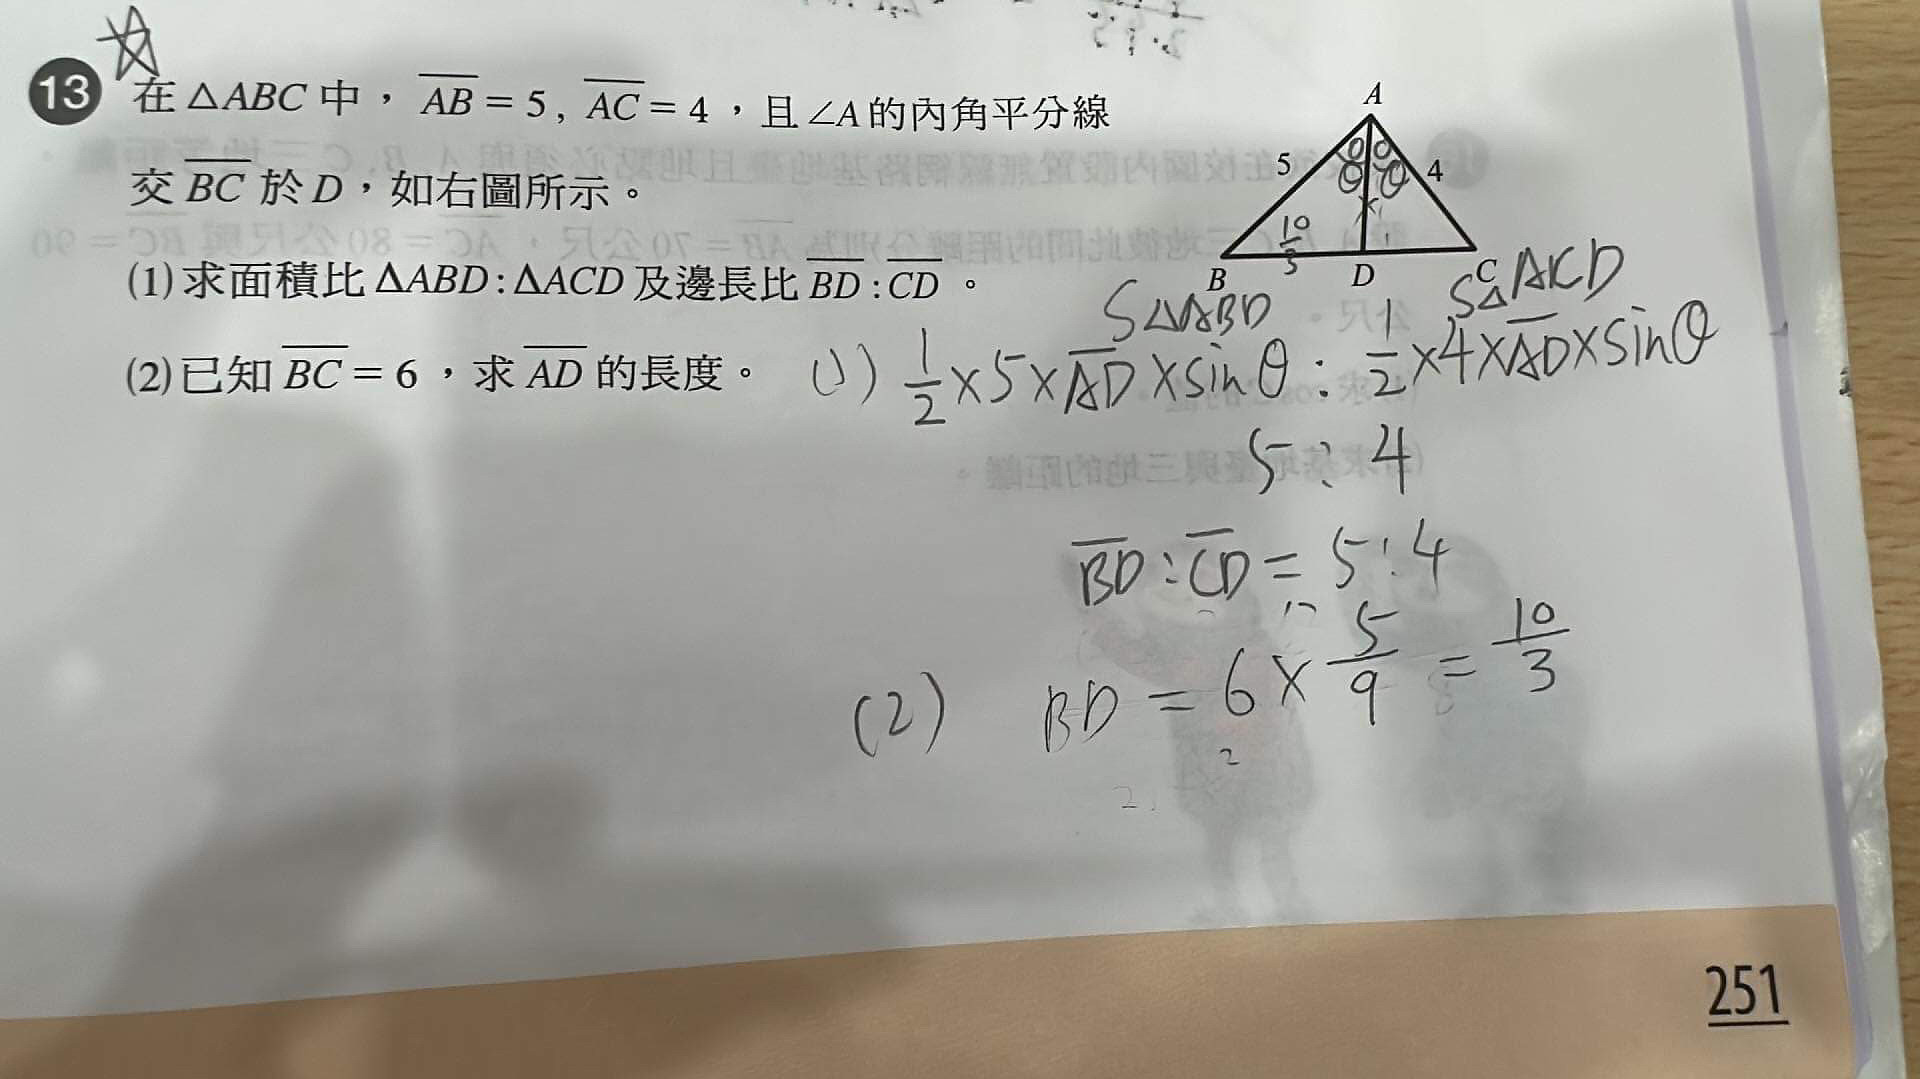 13 在△ABC中，AB=5, AC=4，且∠A的內角平分線
交BC於D，如右圖所示。
(1)求面積比ΔABD:ΔACD及邊長比BD:CD。
(2)已知BC=6，求AD的長度。
A
5
4
θ θ
10/3
B
D
C
S△ABD
S△ACD
(1) 1/2×5×AD×sinθ : 1/2×4×AD×sinθ
5:4
BD:CD=5:4
(2) BD=6×5/9=10/3
2
251